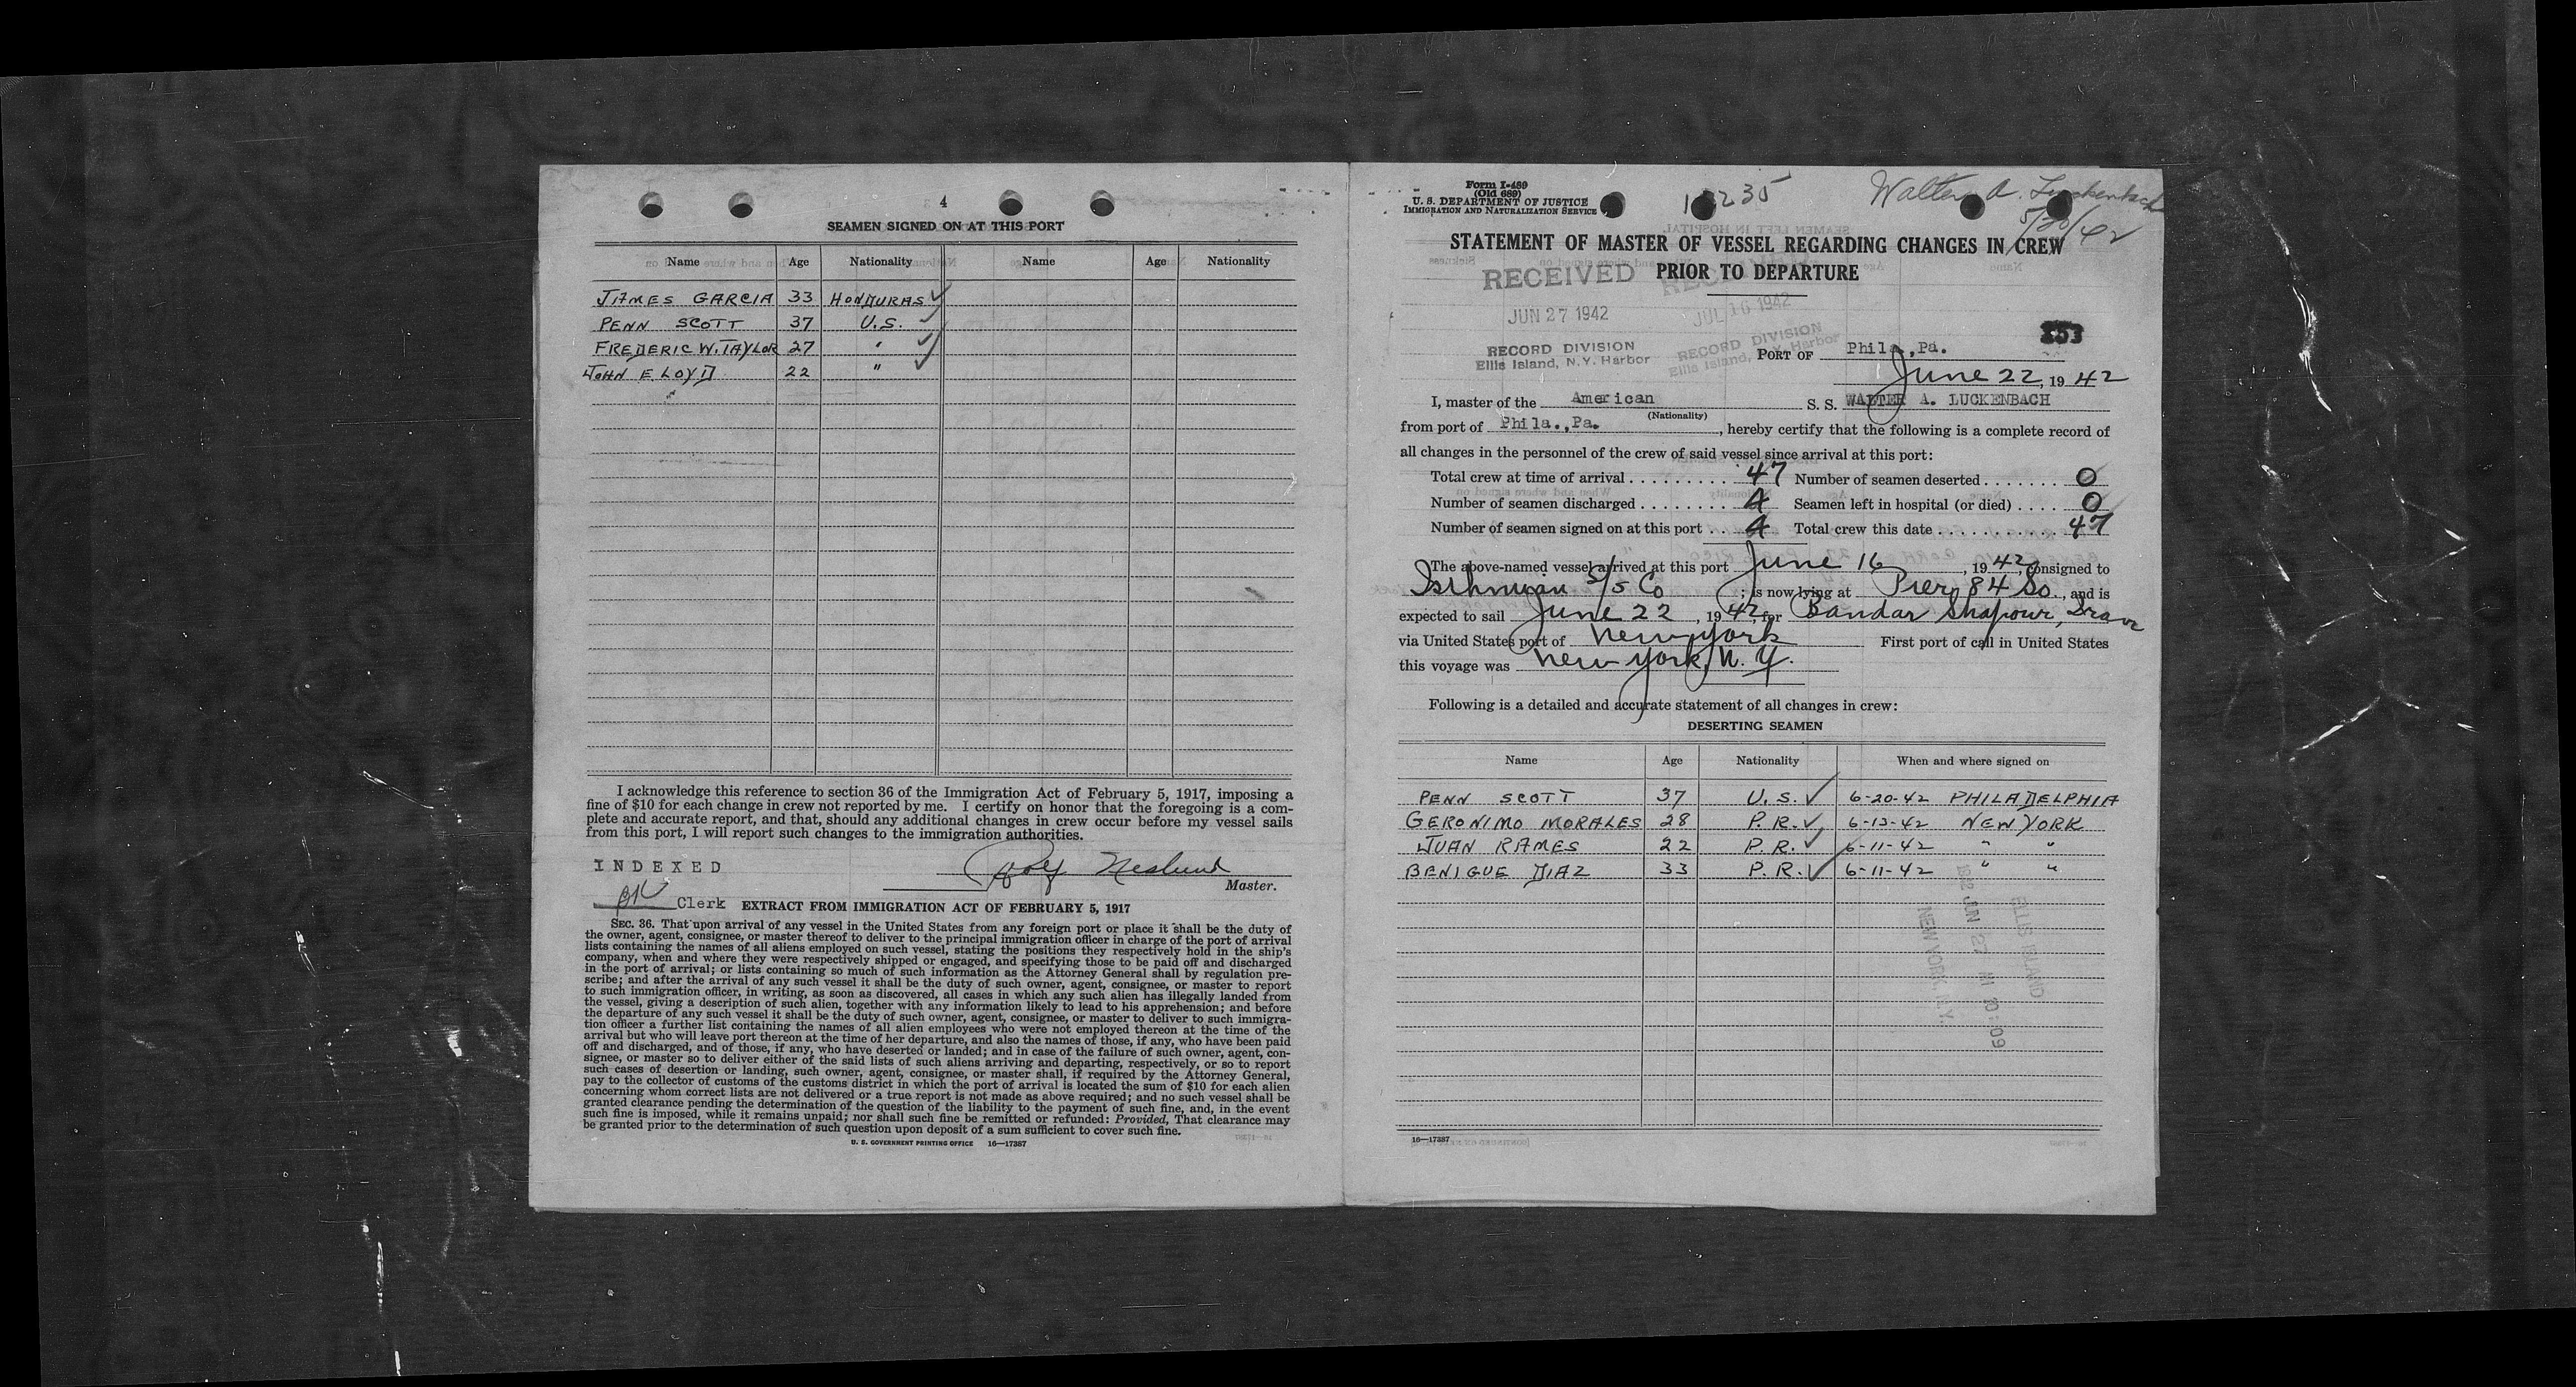 4
SEAMEN SIGNED ON AT THIS PORT
Name Age Nationality Name Age Nationality
JAMES GARCIA 33 HONDURAS ✓
PENN SCOTT 37 U.S. ✓
FREDERIC W. TAYLOR 27 " ✓
JOHN E. LOYD 22 " ✓
I acknowledge this reference to section 36 of the Immigration Act of February 5, 1917, imposing a
fine of $10 for each change in crew not reported by me. I certify on honor that the foregoing is a com-
plete and accurate report, and that, should any additional changes in crew occur before my vessel sails
from this port, I will report such changes to the immigration authorities.
INDEXED
Rolf Neslund
Master.
Clerk
EXTRACT FROM IMMIGRATION ACT OF FEBRUARY 5, 1917
SEC. 36. That upon arrival of any vessel in the United States from any foreign port or place it shall be the duty of
the owner, agent, consignee, or master thereof to deliver to the principal immigration officer in charge of the port of arrival
lists containing the names of all aliens employed on such vessel, stating the positions they respectively hold in the ship's
company, when and where they were respectively shipped or engaged, and specifying those to be paid off and discharged
in the port of arrival; or lists containing so much of such information as the Attorney General shall by regulation pre-
scribe; and after the arrival of any such vessel it shall be the duty of such owner, agent, consignee, or master to report
to such immigration officer, in writing, as soon as discovered, all cases in which any such alien has illegally landed from
the vessel, giving a description of such alien, together with any information likely to lead to his apprehension; and before
the departure of any such vessel it shall be the duty of such owner, agent, consignee, or master to deliver to such immigra-
tion officer a further list containing the names of all alien employees who were not employed thereon at the time of the
arrival but who will leave port thereon at the time of her departure, and also the names of those, if any, who have been paid
off and discharged, and of those, if any, who have deserted or landed; and in case of the failure of such owner, agent, con-
signee, or master so to deliver either of the said lists of such aliens arriving and departing, respectively, or so to report
such cases of desertion or landing, such owner, agent, consignee, or master shall, if required by the Attorney General,
pay to the collector of customs of the customs district in which the port of arrival is located the sum of $10 for each alien
concerning whom correct lists are not delivered or a true report is not made as above required; and no such vessel shall be
granted clearance pending the determination of the question of the liability to the payment of such fine, and, in the event
such fine is imposed, while it remains unpaid; nor shall such fine be remitted or refunded: Provided, That clearance may
be granted prior to the determination of such question upon deposit of a sum sufficient to cover such fine.
U. S. GOVERNMENT PRINTING OFFICE 16—17387
Form I-489
(Old 689)
U. S. DEPARTMENT OF JUSTICE
IMMIGRATION AND NATURALIZATION SERVICE
Walter A. Luckenbach
5/20/42
STATEMENT OF MASTER OF VESSEL REGARDING CHANGES IN CREW
PRIOR TO DEPARTURE
RECEIVED
JUN 27 1942
RECORD DIVISION
Ellis Island, N.Y. Harbor
JUL 16 1942
RECORD DIVISION
Ellis Island, N.Y. Harbor
PORT OF Phila., Pa.
June 22, 1942
I, master of the American S. S. WALTER A. LUCKENBACH
(Nationality)
from port of Phila., Pa., hereby certify that the following is a complete record of
all changes in the personnel of the crew of said vessel since arrival at this port:
Total crew at time of arrival 47 Number of seamen deserted 0
Number of seamen discharged 4 Seamen left in hospital (or died) 0
Number of seamen signed on at this port 4 Total crew this date 47
The above-named vessel arrived at this port June 16, 1942, consigned to
Isthmian S/S Co; is now lying at Pier 84 So., and is
expected to sail June 22, 1942, for Bandar Shapour, Iran
via United States port of New York First port of call in United States
this voyage was New York, N. Y.
Following is a detailed and accurate statement of all changes in crew:
DESERTING SEAMEN
Name Age Nationality When and where signed on
PENN SCOTT 37 U.S. ✓ 6-20-42 PHILADELPHIA
GERONIMO MORALES 28 P.R. ✓ 6-13-42 NEW YORK
JUAN RAMES 22 P.R. ✓ 6-11-42 " "
BENIGUE DIAZ 33 P.R. ✓ 6-11-42 " "
ELLIS ISLAND
1942 JUN 27 AM 10:09
NEW YORK, N.Y.
16—17387